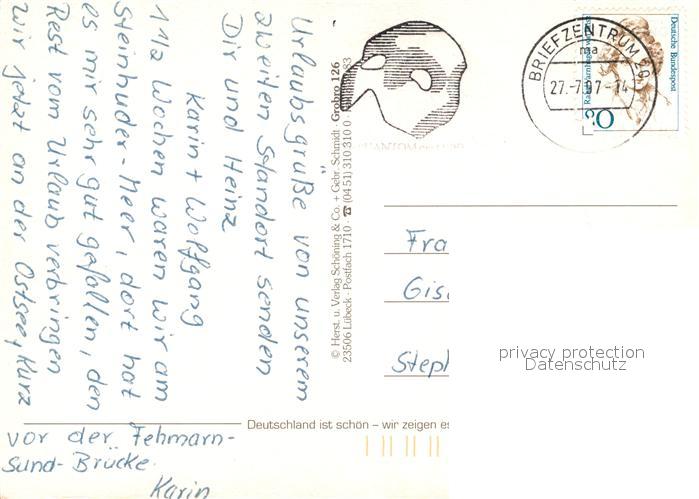 Urlaubsgrüße von unserem
zweiten Standort senden
Dir und Heinz
Karin + Wolfgang
1 1/2 Wochen waren wir am
Steinhuder-Meer, dort hat
es mir sehr gut gefallen, den
Rest vom Urlaub verbringen
wir jetzt an der Ostsee, Kurz
vor der Fehmarn-
Sund-Brücke.
Karin
© Herst. u. Verlag Schöning & Co. + Gebr. Schmidt · Grobro 126
23506 Lübeck · Postfach 1710 · ☎ (04 51) 310 310 0
Deutschland ist schön – wir zeigen es
BRIEFZENTRUM 20
ma
27.-7.97-14
Deutsche Bundespost
Fra
Gis
Steph
privacy protection
Datenschutz